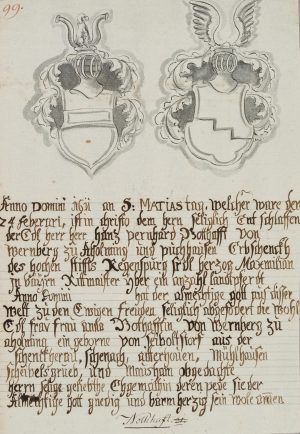 99.
Anno Domini 1611 an S: MATIAS tag, welcher ware der
24 Feberari, ist in christo dem hern seliglich Ent schlaffen
der Edl herr herr hanz pernhardt Notthafft von
wernberg zu Aholming und puchhausen Erbschenckh
des hochen stiffts Regenspurg frtl herzog Maximilian
in bayrn Rittmaister yber ein anzahl landtpferdt
Anno Domini hat der almechtige gott auß diser
welt zu den Ewigen freuden seliglich abgefodert die wohl
Edl frav frav anna Nothafftin von wernberg zu
aholming ein geborne von seiboltstorf aus der
schenckherau, schenach, atterhouen, Mühlhausen
und Maisham obgedachte
herrn selige geliebte Ehgemachin deren pede sie der
Allmechtige gott guedig und barmherzig sein wole amen
Notthafft